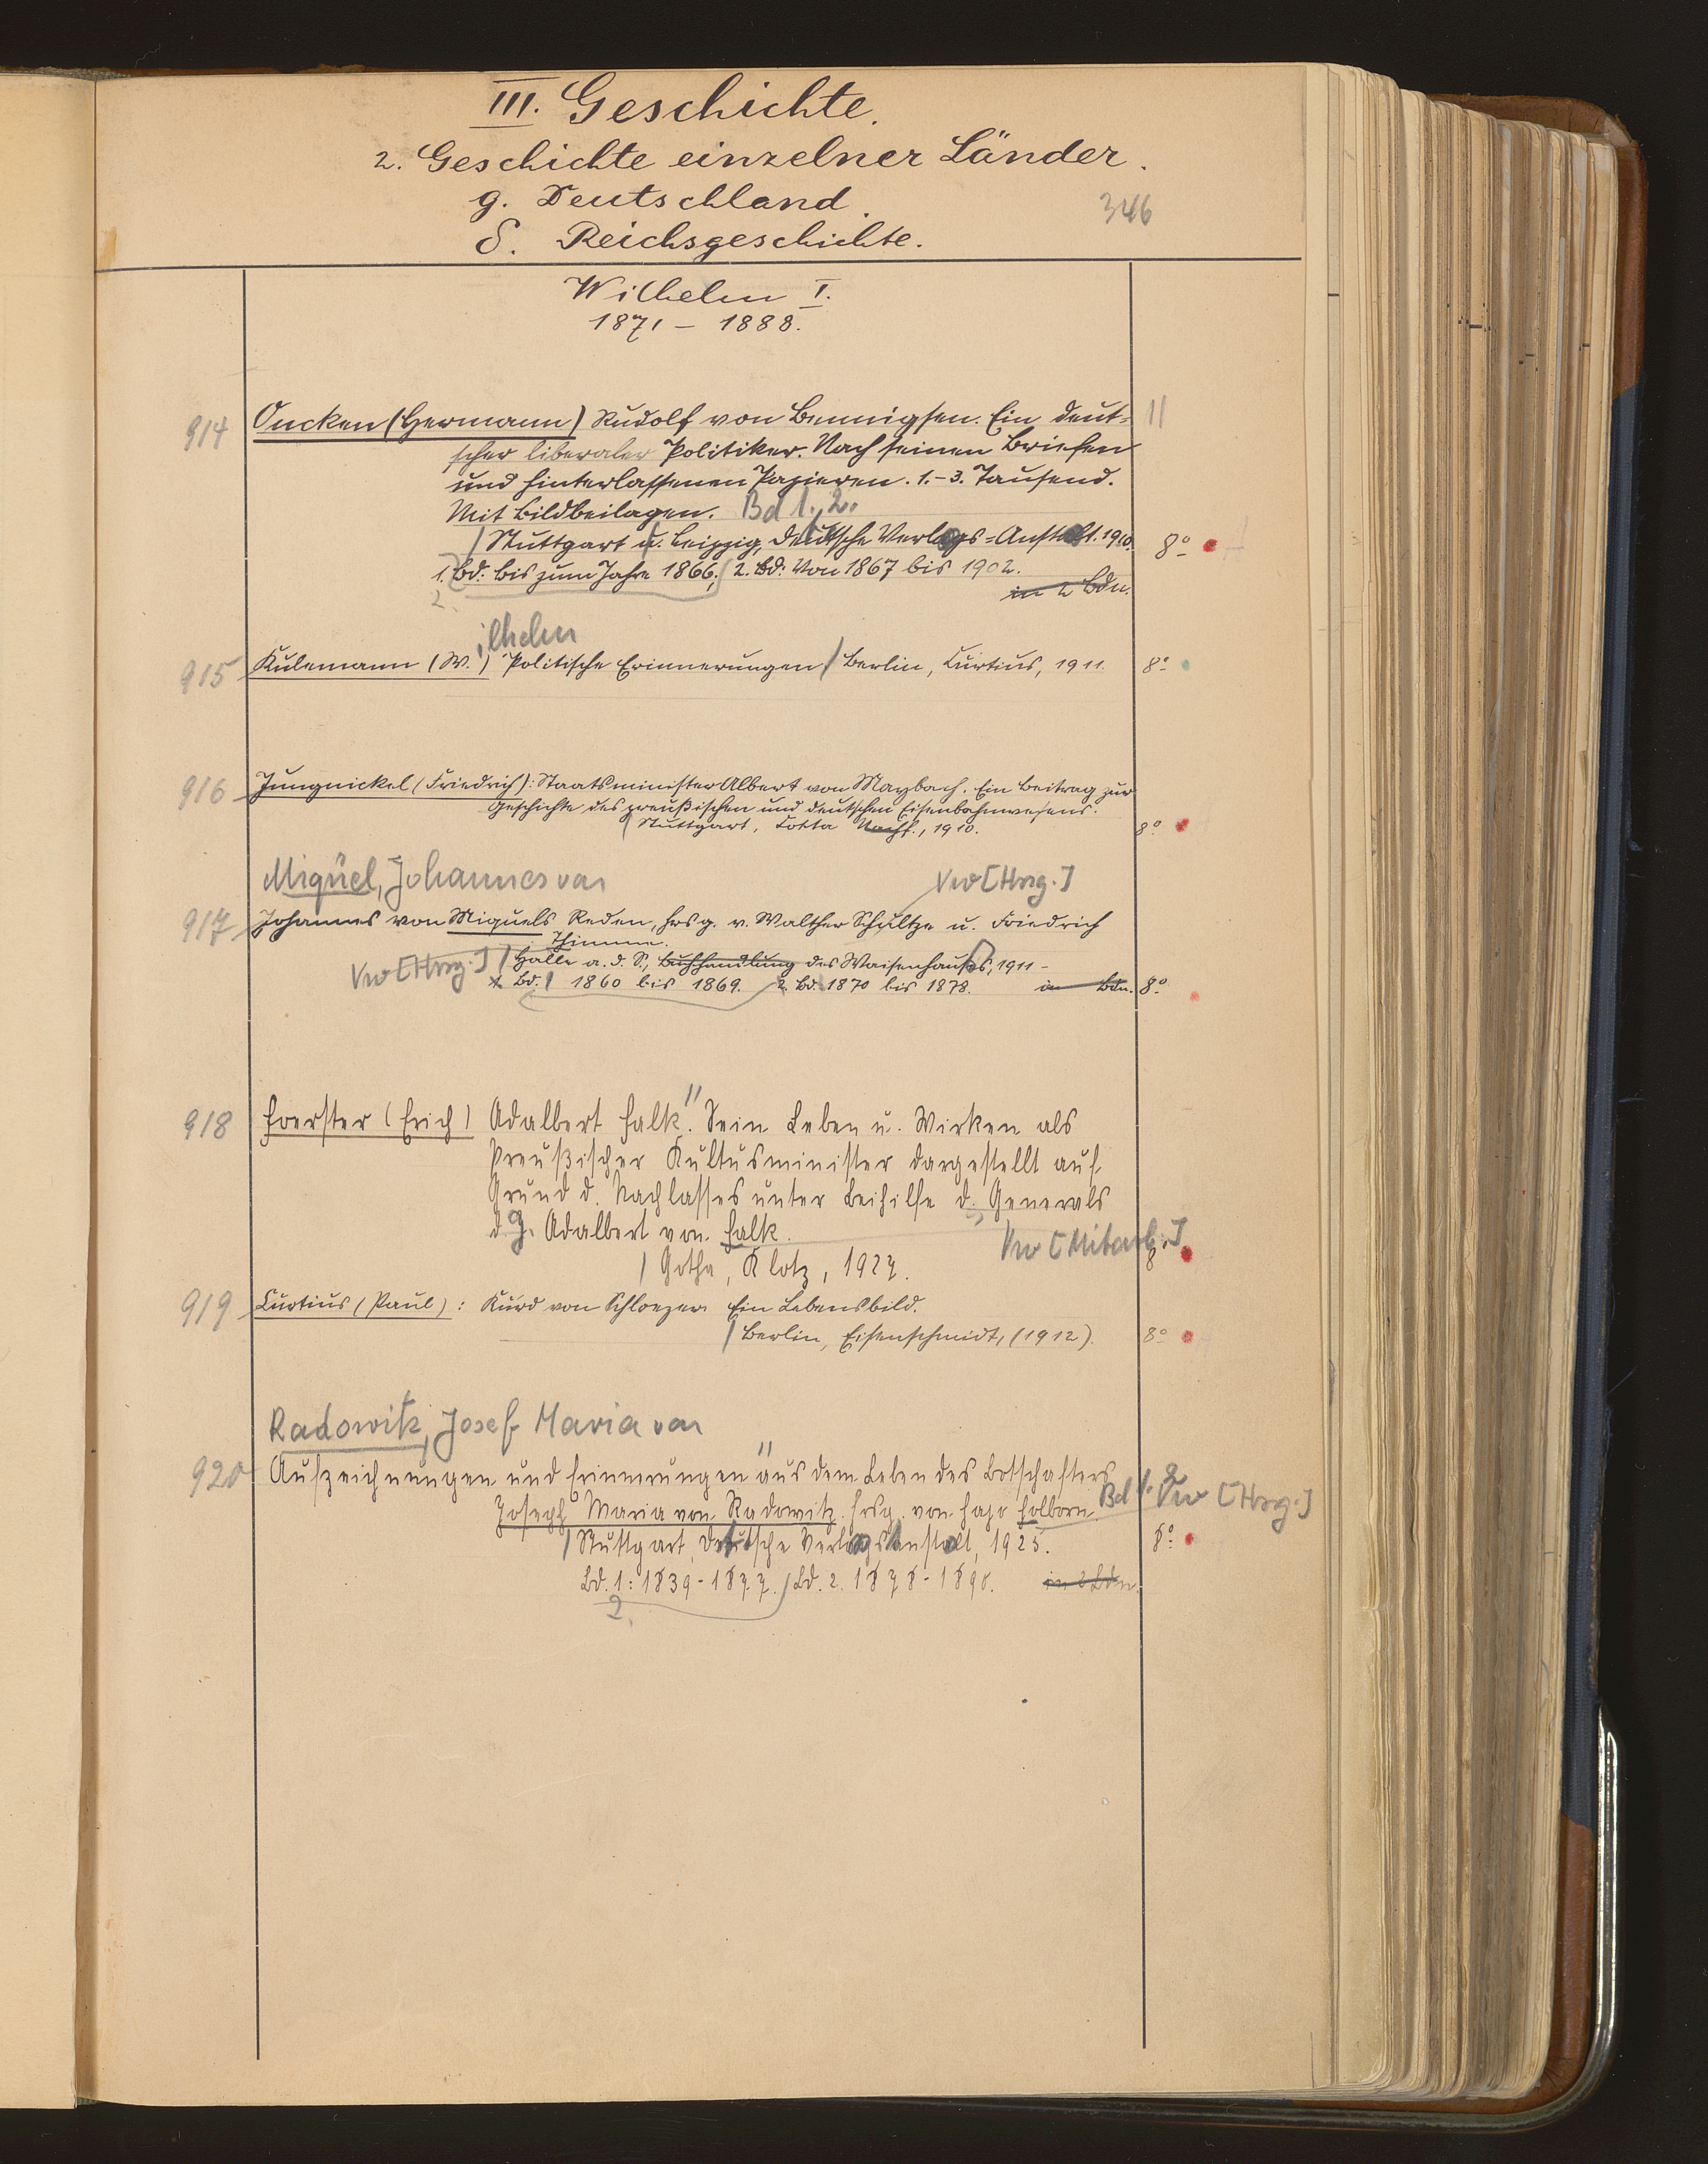 III. Geschichte.
2. Geschichte einzelner Länder.
g. Deutschland.
346
δ. Reichsgeschichte.
Wilhelm I.
1871 - 1888.
914 Oncken (Hermann) Rudolf von Bennigsen. Ein deut= 11
scher liberaler Politiker. Nach seinen Briefen
und hinterlassenen Papieren. 1.-3. Tausend.
Mit Bildbeilagen. Bd 1., 2.
/ Stuttgart u. Leipzig, Deutsche Verlags=Anstalt. 1910. 8°
1. Bd: Bis zum Jahre 1866; / 2. Bd: Von 1867 bis 1902.
2. in 2 Bdn.
ilhelm
915 Kulemann (W.) Politische Erinnerungen / Berlin, Curtius, 1911. 8°
916 Jungnickel (Friedrich): Staatsminister Albert von Maybach. Ein Beitrag zur
Geschichte des preußischen und deutschen Eisenbahnwesens.
/ Stuttgart, Cotta Nachf., 1910. 8°
Miquel, Johannes von Vw [Hrsg.]
917 Johannes von Miquels Reden, hrsg. v. Walther Schultze u. Friedrich
Thimme.
Vw [Hrsg.] / Halle a. d. S., Buchhandlung des Waisenhauses, 1911 -
Bd. 1 1860 bis 1869. 2. Bd. 1870 bis 1878. in Bdn. 8°
918 Foerster (Erich) Adalbert Falk. Sein Leben u. Wirken als
Preußischer Kultusminister dargestellt auf
Grund d. Nachlasses unter Beihilfe d. Generals
d. J. Adalbert von Falk.
Vw [Mitarb.]
/ Gotha, Klotz, 1927. 8°
919 Curtius (Paul): Kurd von Schloezer. Ein Lebensbild.
/ Berlin, Eisenschmidt, (1912). 8°
Radowitz, Josef Maria von
920 Aufzeichnungen und Erinnerungen aus dem Leben des Botschafters
Joseph Maria von Radowitz. Hrsg. von Hajo Holborn. Bd 1. 2 Vw [Hrsg.]
/ Stuttgart, Deutsche Verlagsanstalt, 1925. 8°
Bd. 1: 1839-1877. / Bd. 2. 1878-1890. in 2 Bdn.
2.